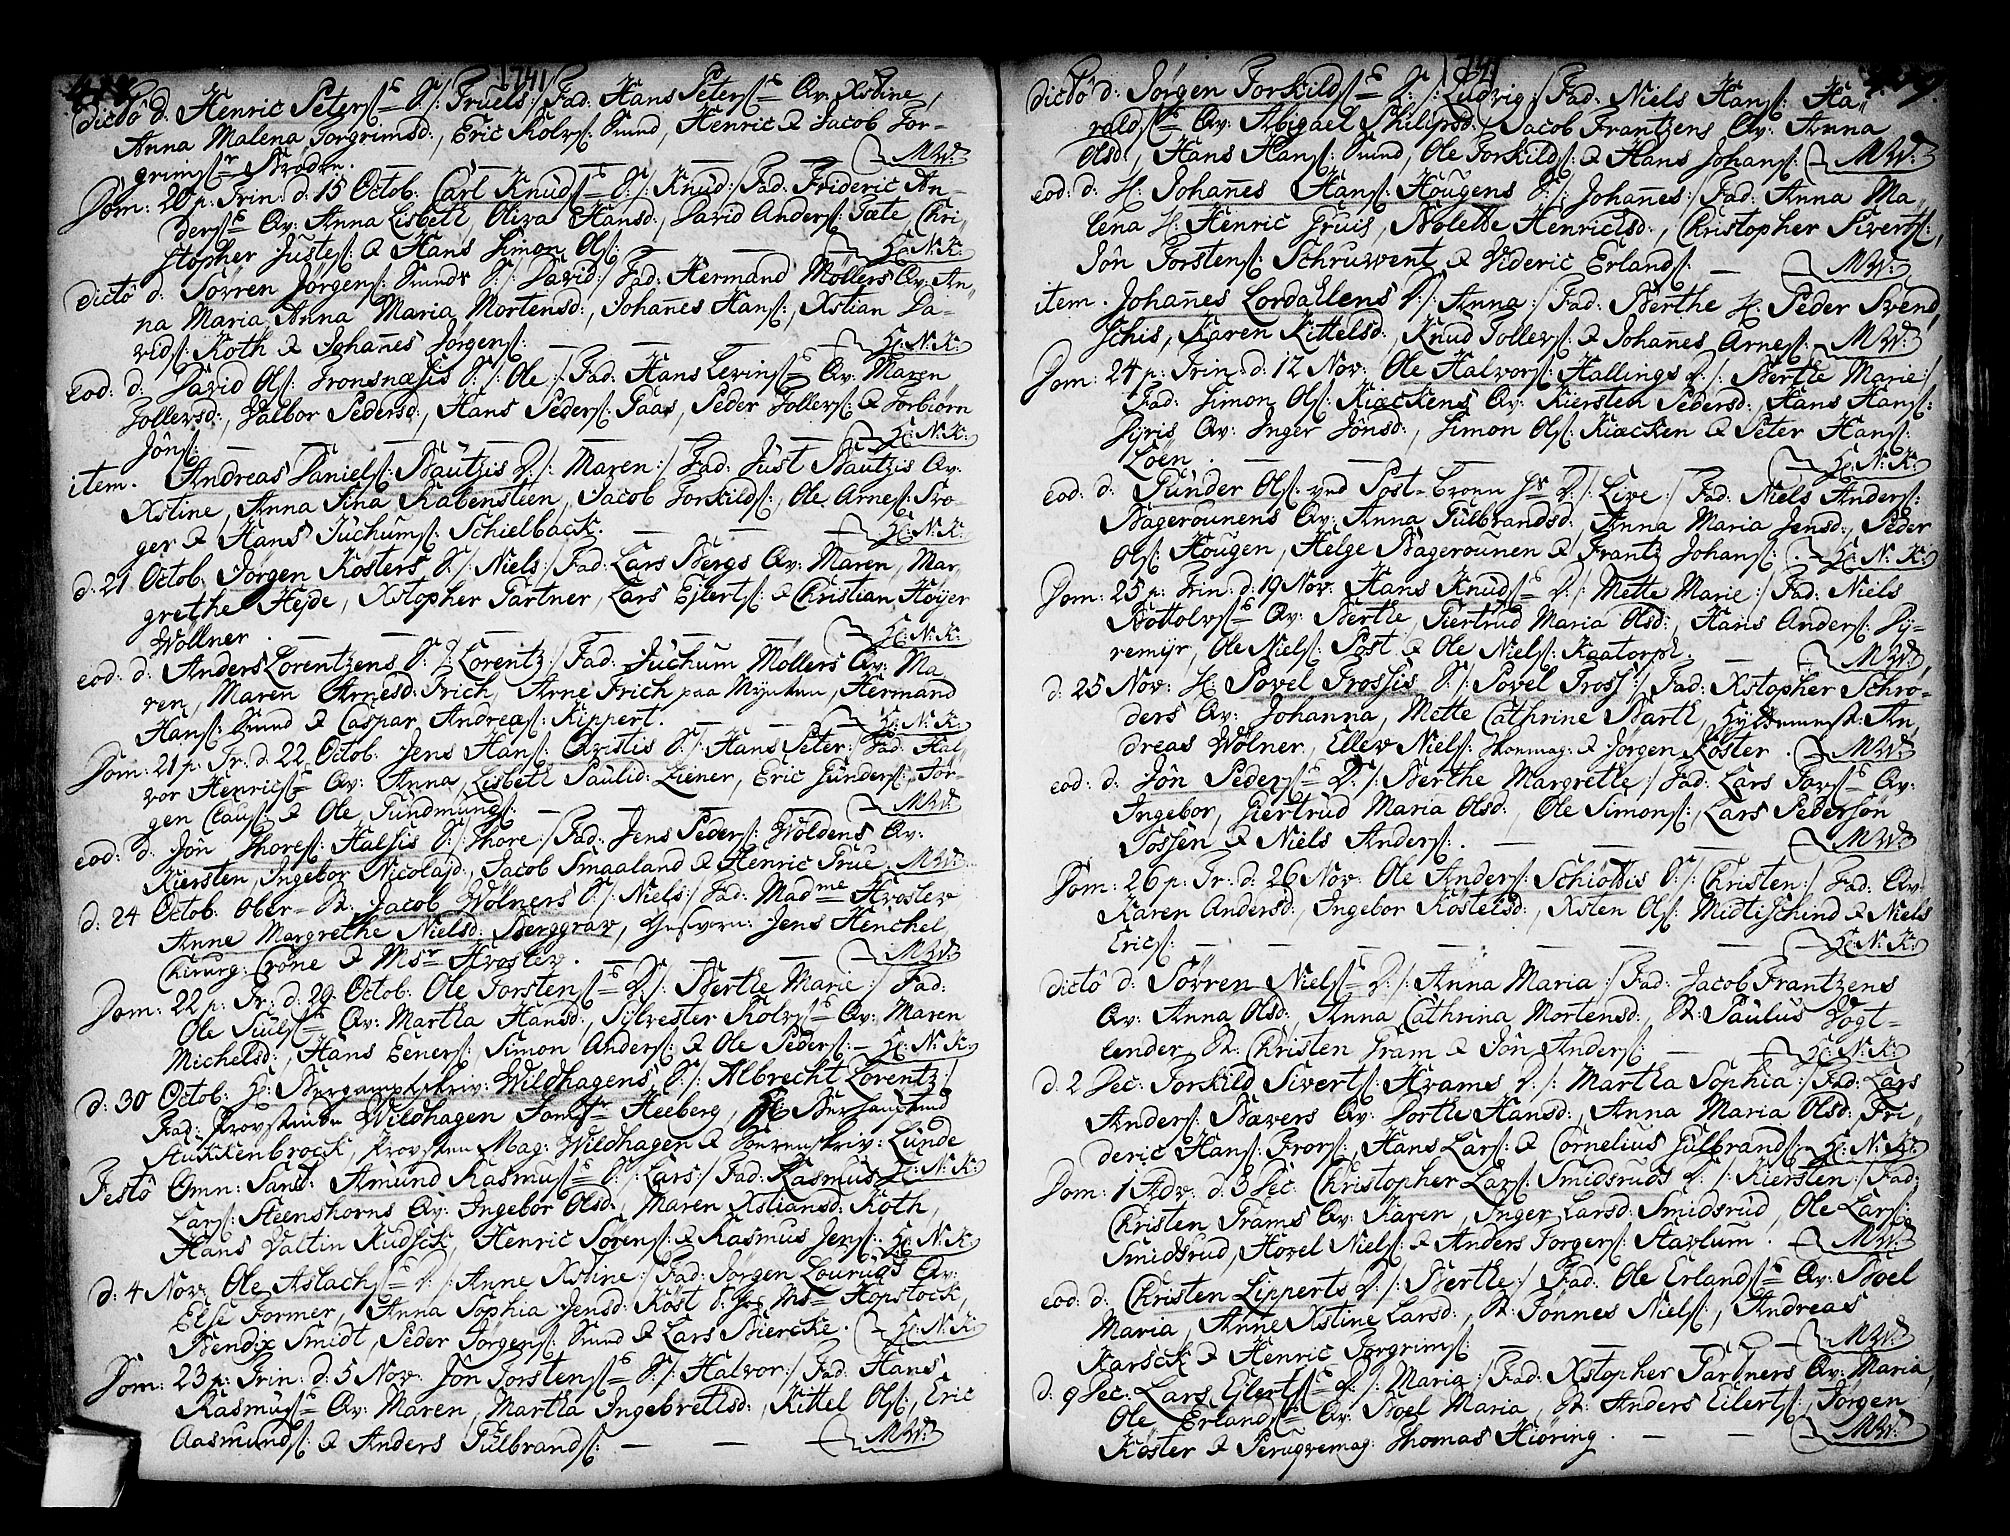 1741
Dictô d: Henric Peterſ:e S:/: Truels:/ Fad: Hans Peterſ:e Qv: Xstine,
Anna Malena Torgrimsd:, Eric Kolvſ: Sund, Henric & Jacob Tor-
grimſ:r Brødre. — — — MW:
Dom: 20 p: Trin: d: 15 Octob: Carl Knudſ:e S:/: Knud:/ Fad: Frideric An-
derſ:e Qv: Anna Lisbeth, Oliva Hansd:, David Anderſ: Tate, Chri-
stopher Justeſ: & Hans Simon Olſ: — — H: N: K:
Dictô d: Sørren Jørgenſ: Sunds S:/: David:/ Fad: Hermand Møllers Qv: An-
na Maria, Anna Maria Mortensd:, Johañes Hanſ:, Xstian Da-
vidſ: Roth & Johañes Jørgenſ: — — — H: N: K:
eod: d: David Olſ: Tronsnæsis S:/: Ole:/ Fad: Hans Levinſ:e Qv: Maren
Tollersd:, Valbor Pedersd:, Hans Pederſ: Paas, Peder Tollerſ: & Torbiørn
Jônſ: — — — — H: N: K:
item. Andreas Danielſ: Bautzis D:/: Maren:/ Fad: Just Bautzis Qv:
Xstine, Anna Sina Rabensteen, Jacob Torkildſ:, Ole Arneſ: Tro-
ger & Hans Juchumſ: Schielback. — — H: N: K:
d: 21 Octob: Jørgen Køsters S:/: Niels:/ Fad: Lars Bergs Qv: Maren, Mar-
grethe Hejde, Xstopher Partner, Lars Ejlertſ: & Christian Høÿer
Wöllner. — — — — H: N: K:
eod: d: Anders Lorentzens S:/: Lorentz:/ Fad: Juchum Møllers Qv: Ma-
ren, Maren Arnesd: Frich, Arne Frich paa Mynten, Hermand
Hanſ: Sund & Caspar Andreaſ: Kippert. — — H: N: K:
Dom: 21 p: Tr: d: 22 Octob: Jens Hanſ: Qvistis S:/: Hans Peter:/ Fad: Hal-
vor Henricſ:e Qv: Anna, Lisbeth Paulid: Ziener, Eric Gunderſ:, Jør-
gen Clauſ: & Ole Gundmundſ: — — MW:
eod: d: Jôn Thoreſ: Halsis S:/: Thore:/ Fad: Jens Pederſ: Woldens Qv:
Kiersten, Ingebor Nicolajd:, Jacob Smaaland & Henric True. MW:
d: 24 Octob: Ober-St: Jacob Wølners S:/: Niels:/ Fad: Madme Hvoslev
Anne Margrethe Nielsd: Berggrav, Geſvorn: Jens Henchel,
Chirurg: Crone & Msr Hvoslev. — — — MW:
Dom: 22 p: Tr: d: 29 Octob: Ole Torstenſ:e D:/: Berthe Marie:/ Fad:
Ole Juulſ:e Qv: Martha Hansd:, Sylvester Kolvſ:e Qv: Maren
Michelsd:, Hans Eenerſ:, Simon Anderſ: & Ole Pederſ: — H: N: K:
d: 30 Octob: H: Bergamptskriv: Wildhagens S:/: Albrecht Lorentz:/
Fad: Provstinde Wildhagen Jomfr Heeberg, H: Berhauptmd
Stukkenbrock, Provsten Mag: Wildhagen & Sorenskriv: Lunde
Festô Omn: Sanct: Amund Rasmuſ:e S:/: Lars:/ Fad: Rasmus H: N: K:
Larſ: Steenshorns Qv: Ingebor Olsd:, Maren Xstiansd: Roth,
Hans Valtin Kudsck, Henric Sørenſ: & Rasmus Jenſ: H: N: K:
d: 4 Nov: Ole Aslachſ:e D:/: Anne Xstine:/ Fad: Jørgen Lourugs Qv:
Else Former, Anna Sophia Jensd: Køst S: Msr Hopstock,
Bendix Smidt, Peder Jørgenſ: Sund & Lars Biercke. H: N: K:
Dom: 23 p: Trin: d: 5 Nov: Jôn Torstenſ:e S:/: Halvor:/ Fad: Hans
Rasmuſ:e Qv: Maren, Martha Ingebrettsd:, Kittel Olſ:, Eric
Aasmundſ: & Anders Gulbrandſ: — — MW:
1741
Dictô d: Jørgen Torkildſ:e S:/: Ludvig:/ Fad: Niels Hanſ: Ha-
raldſ:e Qv: Abigael Philipsd:, Jacob Frantzens Qv: Anna
Olsd:, Hans Hanſ: Sund, Ole Torkildſ: & Hans Johanſ: MW:
eod: d: H: Johañes Hanſ: Hougens S:/: Johañes:/ Fad: Anna Ma-
lena H: Henric Gruis, Nolethe Henricsd:, Christopher Sivertſ:,
Jôn Torstenſ: Schruwent & Videric Erlandſ: — MW:
item. Johañes Lordahlens D:/: Anna:/ Fad: Berthe H: Peder Svend,
Schis, Karen Kittelsd:, Knud Tollevſ: & Johañes Arneſ: MW:
Dom: 24 p: Trin: d: 12 Nov: Ole Halvorſ: Hallings D:/: Berthe Marie:/
Fad: Simon Olſ: Kiæckens Qv: Kiersten Pedersd:, Hans Hanſ:
Pÿris Qv: Inger Jônsd:, Simon Olſ: Kiæcken & Peter Hanſ:
Loen. — — — — — H: N: K:
eod: d: Gunder Olſ: ved Post-Brønn D:/: Live:/ Fad: Niels Anderſ:
Bagerounens Qv: Anna Gulbrandsd:, Anna Maria Jensd:, Peder
Olſ: Hougen, Helge Bagerounen & Frantz Johanſ: . — H: N: K:
Dom: 25 p: Trin: d: 19 Nov: Hans Knudſ:e D:/: Mette Marie:/ Fad: Niels
Bottolvſ:e Qv: Berthe, Giertrud Maria Olsd:, Hans Anderſ: Pÿ-
remÿr, Ole Nielſ: Post & Ole Nielſ: Kaatorp. — MW:
d: 25 Nov: H: Povel Trossis S:/: Povel Tross:/ Fad: Xstopher Schrø-
ders Qv: Johanna, Mette Cathrine Barth, Hyttemest: An-
dreas Wölner, Ellev Nielſ: Skomag: & Jørgen Køster. MW:
eod: d: Jôn Pederſ:e D:/: Berthe Margrethe:/ Fad: Lars Torſ:e Qv:
Ingebor, Giertrud Maria Olsd:, Ole Simonſ:, Lars Pedersøn
Fossen & Niels Anderſ: . — — — MW:
Dom: 26 p: Tr: d: 26 Nov: Ole Anderſ: Schiøttis S:/: Christen:/ Fad: Qv:
Karen Andersd:, Ingebor Kostelsd:, Xsten Olſ: Midtischind & Niels
Ericſ: — — — — — — H: N: K:
dictô d: Sørren Nielſ:e D:/: Anna Maria:/ Fad: Jacob Frantzens
Qv: Anna Olsd:, Anna Cathrina Mortensd:, St: Paulus Vogt-
lender, St: Christen Gram & Jôn Anderſ: — — H: N: K:
d: 2 Dec: Torkild Sivertſ: Hvams D:/: Martha Sophia:/ Fad: Lars
Anderſ: Bævers Qv: Dorthe Hansd:, Anna Maria Olsd:, Fri-
deric Hanſ: Frorſ:, Hans Larſ: & Cornelius Gulbrandſ: H: N: K:
Dom: 1 Adv: d: 3 Dec: Christopher Larſ: Smidsruds D:/: Kiersten:/ Fad:
Christen Grams Qv: Karen, Inger Larsd: Smidsrud, Ole Larſ:
Smidsrud, Hovel Nielſ: & Anders Jorgenſ: Aavlum. — MW:
eod: d: Christen Lipperts D:/: Berthe:/ Fad: Ole Erlandſ:e Qv: Boel
Maria, Anne Xstine Larsd:, St: Tønnes Nielſ:, Andreas
Karsck & Henric Torgrimſ: — — — — MW:
d: 9 Dec: Lars Ejlertſ:e D:/: Maria:/ Fad: Xstopher Partners Qv: Maria,
Ole Erlandſ:e Qv: Boel Maria, St: Anders Eilertſ:, Jørgen
Køster & Perugvemag: Thomas Hiøring. — — MW: